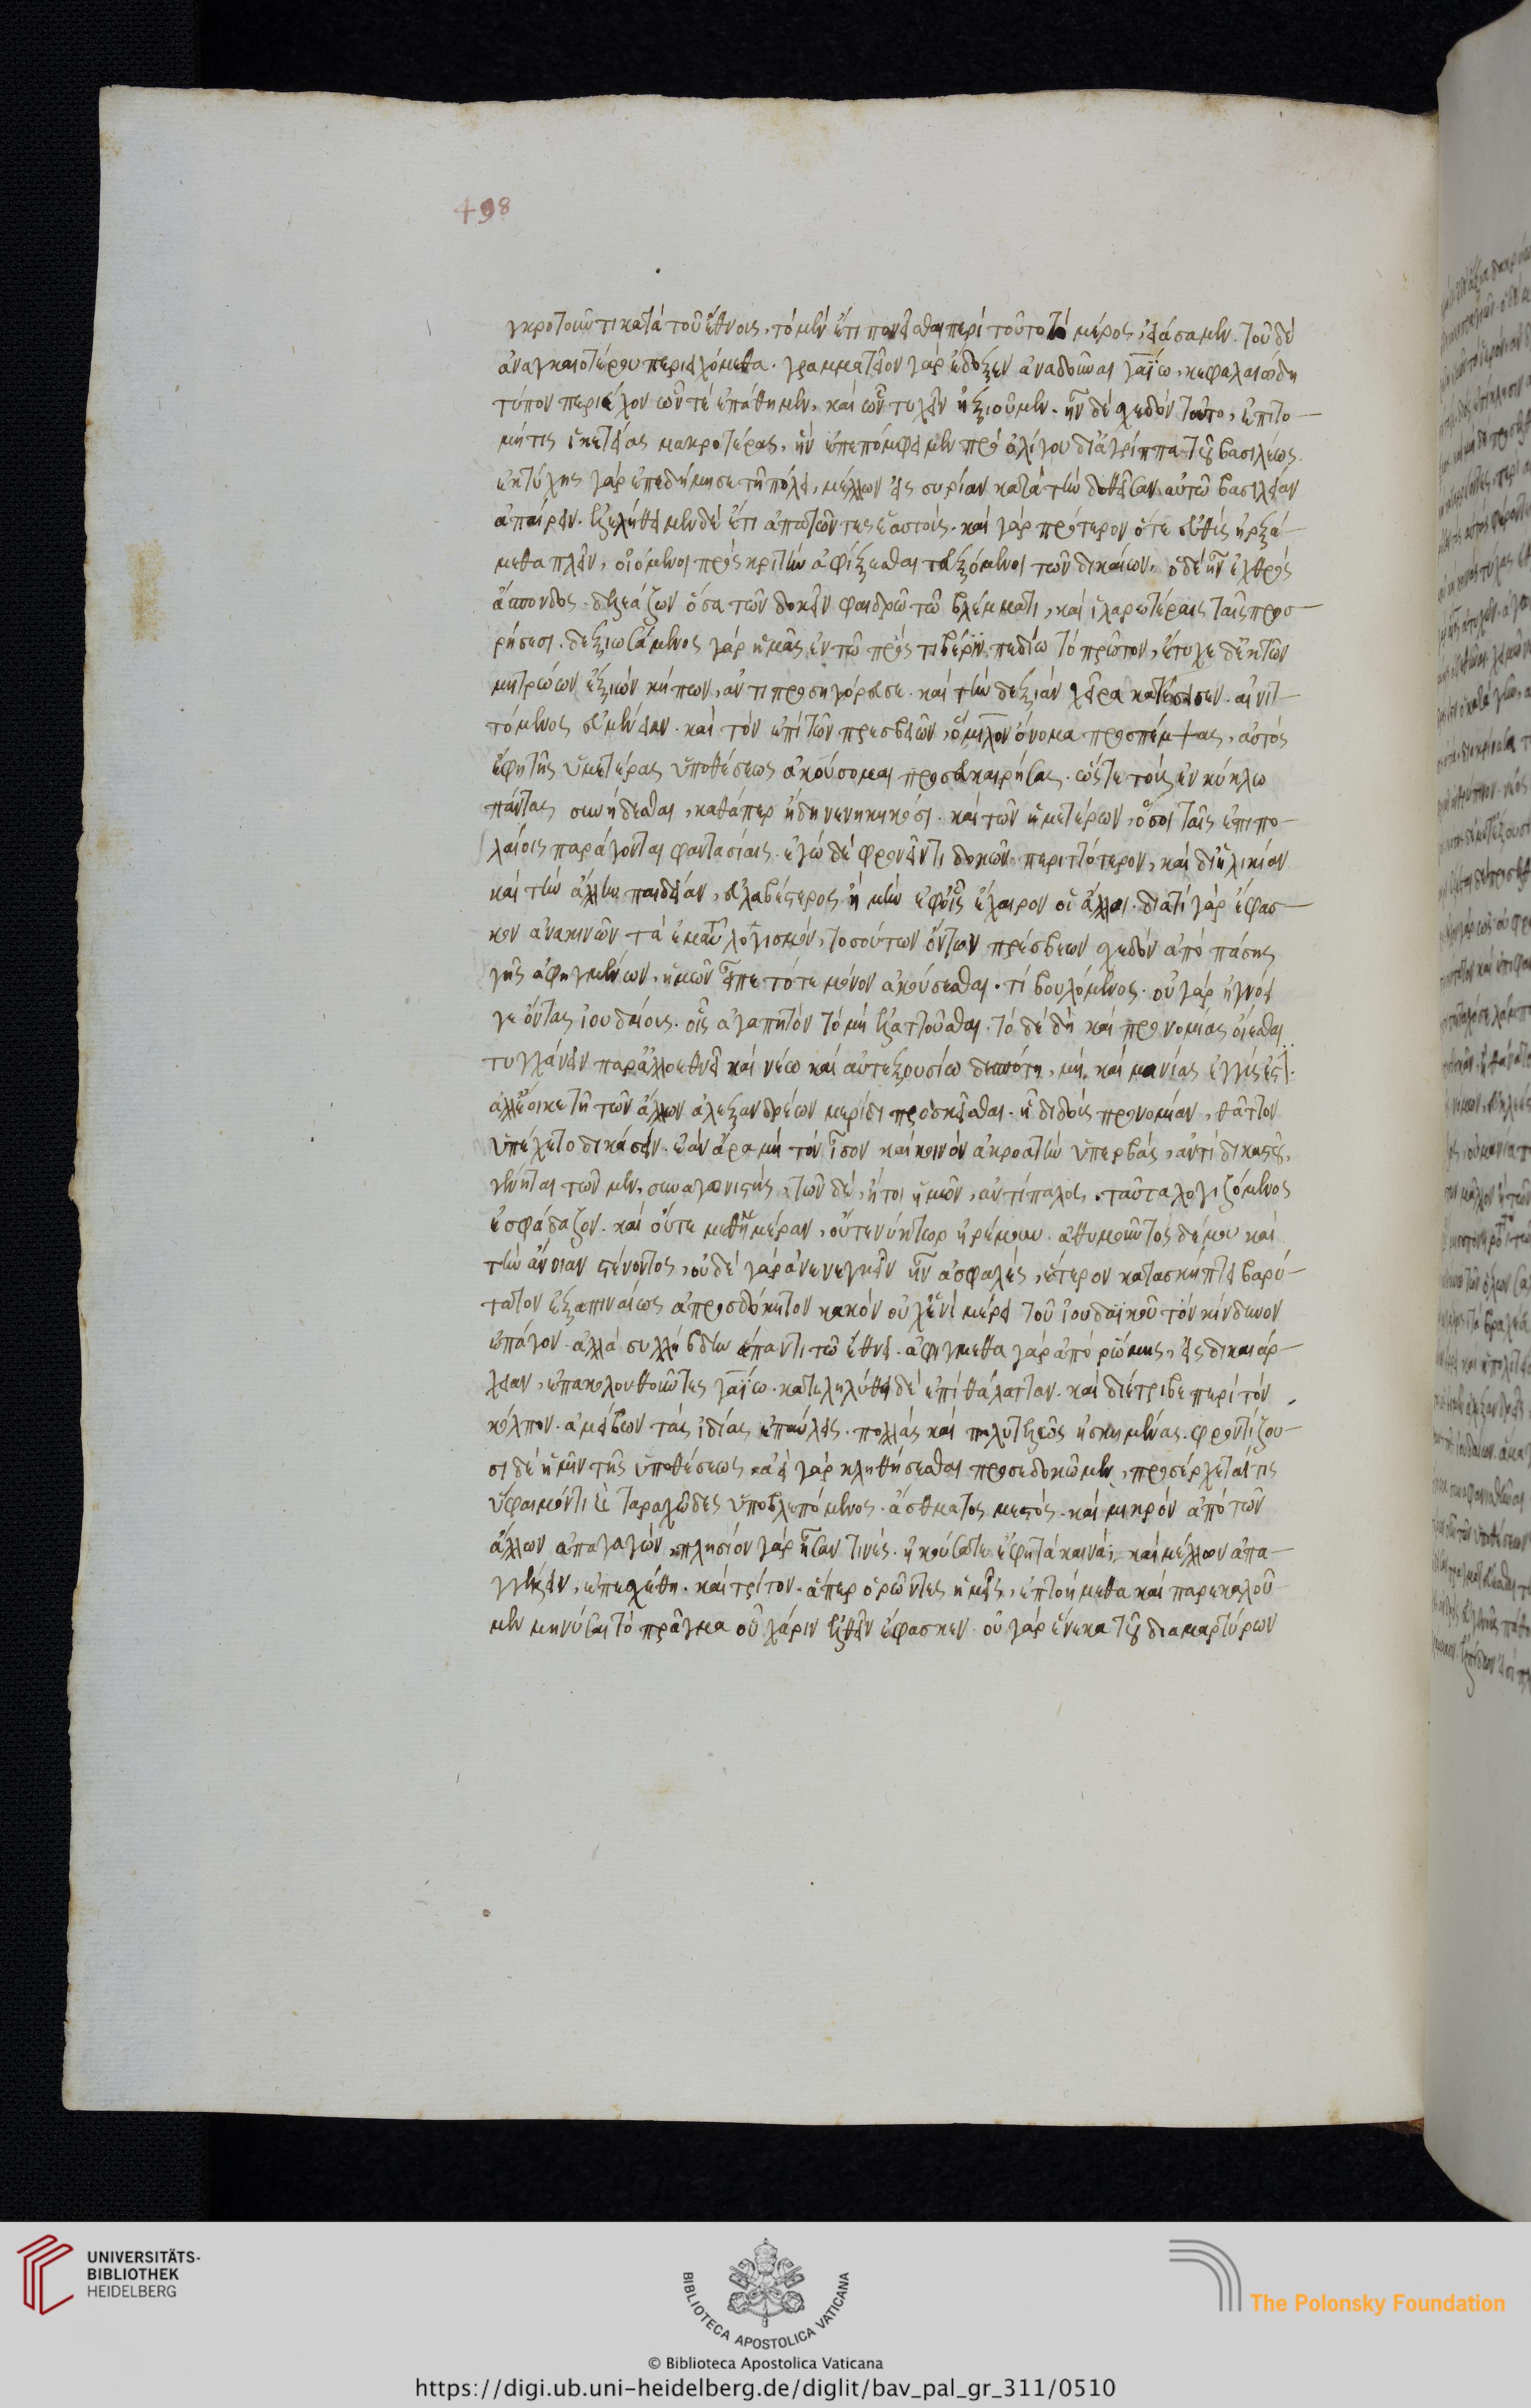 γκροτοῦντι κατὰ τοῦ ἔθνους, τὸ μὲν ἔτι πονεῖσθαι περὶ τοῦτο τὸ μέρος, εἰάσαμεν. τοῦ δὲ
ἀναγκαιοτέρου περιειχόμεθα. γραμματεῖον γὰρ ἔδοξεν ἀναδοῦναι γαΐω, κεφαλαιώδη
τύπον περιέχον ὧν τὲ ἐπάθημεν, καὶ ὧν τυχεῖν ἠξιοῦμεν. ἦν δὲ σχεδὸν τοῦτο, ἐπιτο-
μή τις ἱκετείας μακροτέρας, ἣν ἐπεπόμφειμεν πρὸ ὀλίγου δι' ἀγρίππα τοῦ βασιλέως.
ἐκ τύχης γὰρ ἐπεδήμησε τῇ πόλει, μέλλων εἰς συρίαν κατὰ τὴν δοθεῖσαν αὐτῶ βασιλείαν
ἀπαίρειν. ἐλελήθειμεν δὲ ἔτι ἀπατῶντες ἑαυτούς. καὶ γὰρ πρότερον ὅτε εὐθὺς ἠρξά-
μεθα πλεῖν, οἰόμενοι πρὸς κριτὴν ἀφίξεσθαι τευξόμενοι τῶν δικαίων. ὁ δὲ ἦν ἐχθρὸς
ἄσπονδος. δελεάζων ὅσα τῶν δοκεῖν φαιδρῶ τῶ βλέμματι, καὶ ἱλαρωτέραις ταῖς προσ-
ρήσεσι. δεξιωσάμενος γὰρ ἡμᾶς ἐν τῶ πρὸς τιβέρϊν πεδίω τὸ πρῶτον, ἔτυχε δ' ἐκ τῶν
μητρώων ἐξιὼν κήπων, ἀντιπροσηγόρευσε. καὶ τὴν δεξιὰν χεῖρα κατέσεισεν. αἰνιτ-
τόμενος εὐμένειαν. καὶ τὸν ἐπὶ τῶν πρεσβειῶν, ὅμιλον ὄνομα προσπέμψας, αὐτὸς
ἔφη τῆς ὑμετέρας ὑποθέσεως ἀκούσομαι προσευκαιρήσας. ὥστε τοὺς ἐν κύκλω
πάντας συνήδεσθαι, καθάπερ ἤδη νενηκηκόσι. καὶ τῶν ἡμετέρων, ὅσοι ταῖς ἐπιπο-
λαίοις παράγονται φαντασίαις. ἐγὼ δὲ φρονεῖν τι δοκῶν περιττότερον, καὶ δι' ἡλικίαν
καὶ τὴν ἄλλην παιδείαν, εὐλαβέστερος ἤμην ἐφ' οἷς ἔχαιρον οἱ ἄλλοι. διατί γὰρ ἔφασ-
κον ἀνακινῶν τὰ ἐμαυτοῦ λογισμόν, τοσούτων ὄντων πρέσβεων σχεδὸν ἀπὸ πάσης
γῆς ἀφηγμένων, ἡμῶν εἶπε τότε μόνον ἀκούσεσθαι. τί βουλόμενος. οὐ γὰρ ἠγνόει
γε ὄντας ἰουδαίους. οἷς ἀγαπητὸν τὸ μὴ ἐλαττοῦσθαι. τὸ δὲ δὴ καὶ προνομίας οἴεσθαι
τυγχάνειν παρ' ἀλλοεθνεῖ καὶ νέω καὶ αὐτεξουσίω δεσπότη, μὴ καὶ μανίας ἐγγύς ἐστι.
ἀλλ' ἔοικε τῇ τῶν ἄλλων ἀλεξανδρέων μερίδι προσκεῖσθαι. ᾗ διδοὺς προνομίαν, θᾶττον
ὑπέσχετο δικάσειν. ἐὰν ἄρα μὴ τὸν ἶσον καὶ κοινὸν ἀκροατὴν ὑπερβάς, ἀντὶ δικαστοῦ,
γένηται τῶν μὲν, συναγωνιστής, τῶν δέ, ἤτοι ἡμῶν, ἀντίπαλος. ταῦτα λογιζόμενος
ἐσφάδαζον. καὶ οὔτε μεθ' ἡμέραν, οὔτε νύκτωρ ἠρέμουν. ἀθυμοῦντος δέ μου καὶ
τὴν ἄνοιαν στένοντος, οὐδὲ γὰρ ἀνενεγκεῖν ἦν ἀσφαλές, ἕτερον κατασκήπτει βαρύ-
τατον ἐξαπιναίως ἀπροσδόκητον κακὸν οὐχ ἑνὶ μέρει τοῦ ἰουδαϊκοῦ τὸν κίνδυνον
ἐπάγον. ἀλλὰ συλλήβδην ἅπαντι τῶ ἔθνει. ἀφίγμεθα γὰρ ἀπὸ ῥώμης, εἰς δικαιάρ-
χειαν, ἐπακολουθοῦντες γαΐω. κατεληλύθει δὲ ἐπὶ θάλατταν. καὶ διέτριβε περὶ τὸν
κόλπον. ἀμείβων τὰς ἰδίας ἐπαύλεις. πολλὰς καὶ πολυτελῶς ἠσκημένας. φροντίζου-
σι δὲ ἡμῖν τῆς ὑποθέσεως, ἀεὶ γὰρ κληθήσεσθαι προσεδοκῶμεν, προσέρχεταί τις
ὕφαιμόν τι καὶ ταραχῶδες ὑποβλεπόμενος. ἄσθματος μεστός. καὶ μικρὸν ἀπὸ τῶν
ἄλλων ἀπαγαγὼν, πλησίον γὰρ ἦσάν τινές. ἠκούσατε ἔφη τὰ καινά; καὶ μέλλων ἀπα-
γγέλλειν, ἐπεσχέθη. καὶ τρίτον. ἅπερ ὁρῶντες ἡμεῖς, ἐπτοήμεθα καὶ παρεκαλοῦ-
μεν μηνῦσαι τὸ πρᾶγμα οὗ χάριν ἐλθεῖν ἔφασκεν. οὐ γὰρ ἕνεκα τοῦ διὰ μαρτύρων
498
UNIVERSITÄTS-
BIBLIOTHEK
HEIDELBERG
BIBLIOTECA APOSTOLICA VATICANA
The Polonsky Foundation
© Biblioteca Apostolica Vaticana
https://digi.ub.uni-heidelberg.de/diglit/bav_pal_gr_311/0510